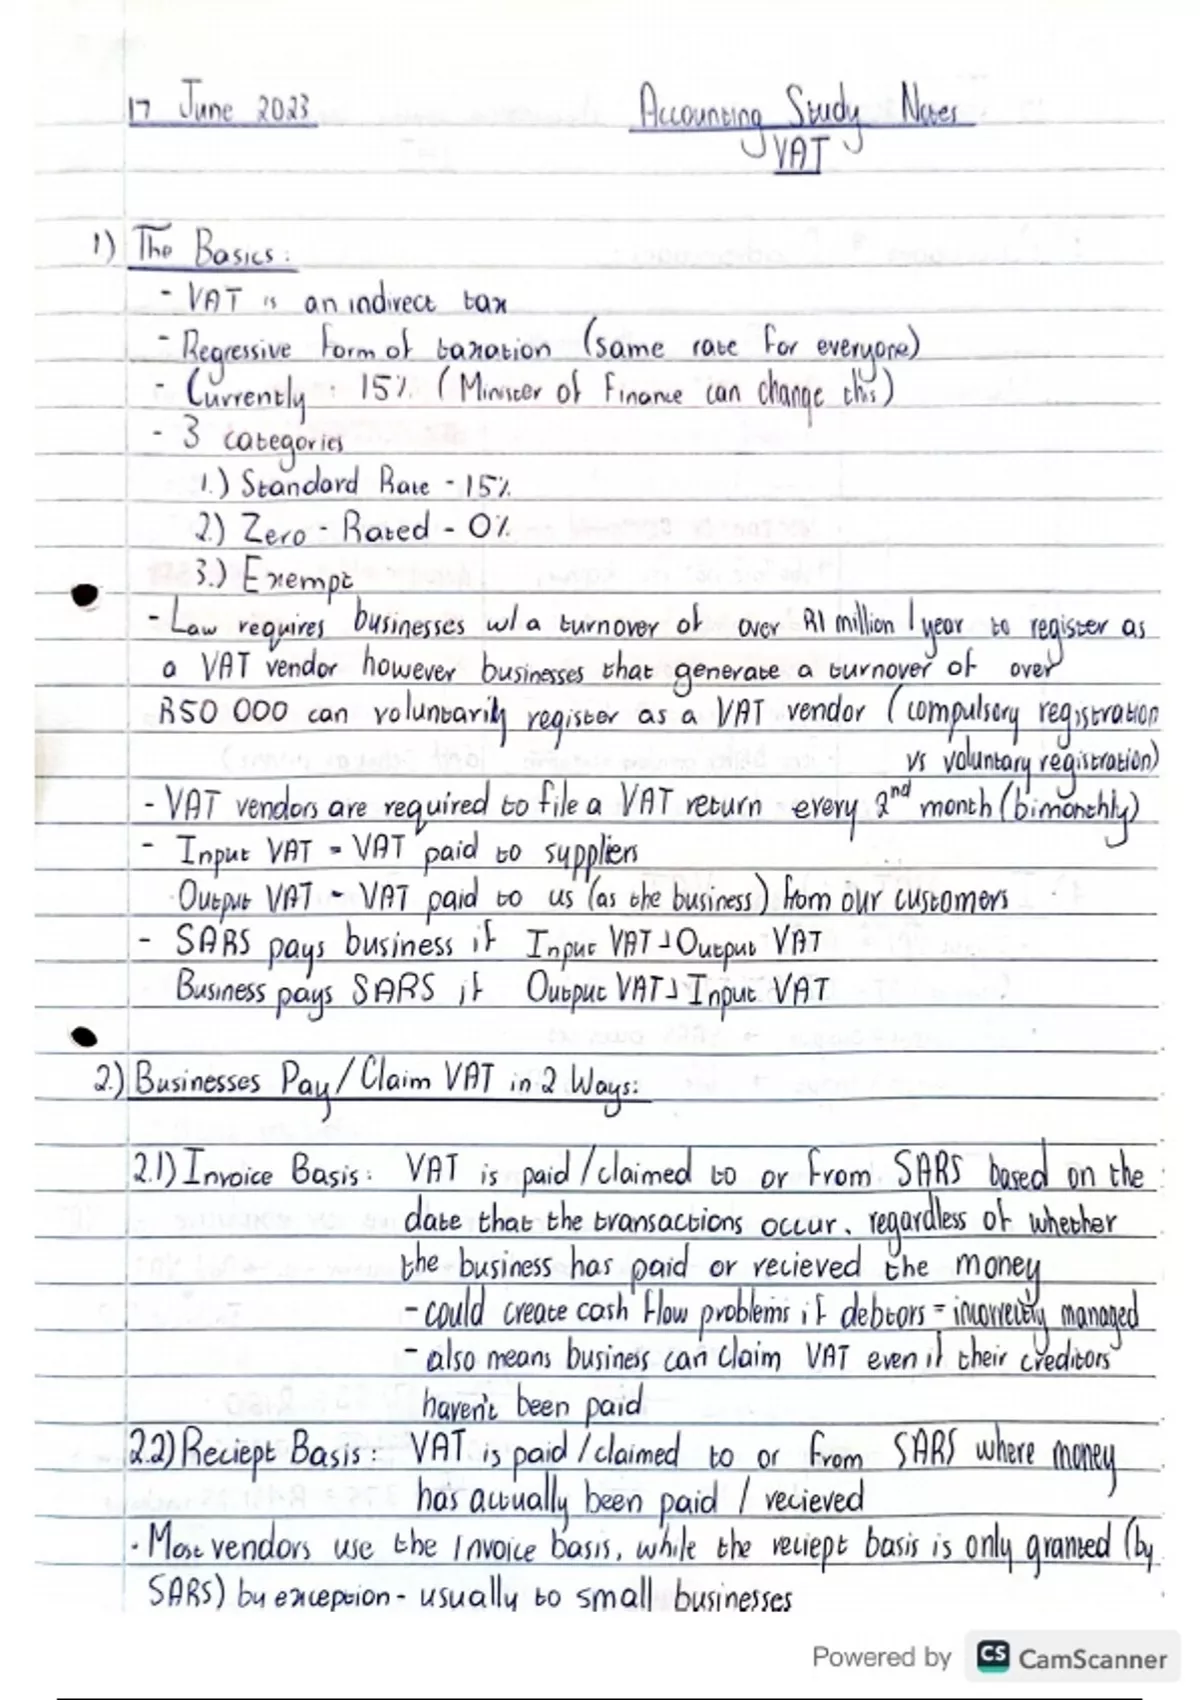 17 June 2023 Accounting Study Notes
VAT
1) The Basics:
- VAT is an indirect tax
- Regressive form of taxation (same rate for everyone)
- Currently : 15% (Minister of Finance can change this)
- 3 categories
1.) Standard Rate - 15%
2.) Zero - Rated - 0%
3.) Exempt
- Law requires businesses w/ a turnover of over R1 million / year to register as
a VAT vendor however businesses that generate a turnover of over
R50 000 can voluntarily register as a VAT vendor (compulsory registration
vs voluntary registration)
- VAT vendors are required to file a VAT return every 2nd month (bimonthly)
- Input VAT = VAT paid to suppliers
Output VAT = VAT paid to us (as the business) from our customers
- SARS pays business if Input VAT > Output VAT
Business pays SARS if Output VAT > Input VAT
2.) Businesses Pay/Claim VAT in 2 Ways:
2.1) Invoice Basis: VAT is paid/claimed to or from SARS based on the
date that the transactions occur, regardless of whether
the business has paid or recieved the money
- could create cash flow problems if debtors = incorrectly managed
- also means business can claim VAT even if their creditors
haven't been paid
2.2) Reciept Basis: VAT is paid/claimed to or from SARS where money
has actually been paid / recieved
· Most vendors use the invoice basis, while the reciept basis is only granted (by
SARS) by exception - usually to small businesses
Powered by CS CamScanner